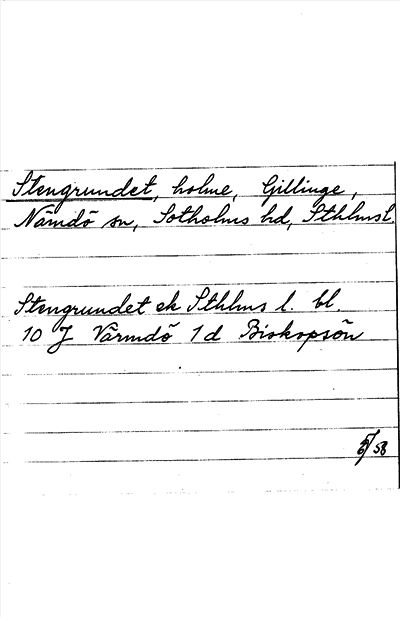 Stengrundet, holme, Gillinge,
Nämdö sn, Sotholms hd, Sthlmsl.
Stengrundet ek Sthlms l. bl.
10 J Värmdö 1 d Biskopsön